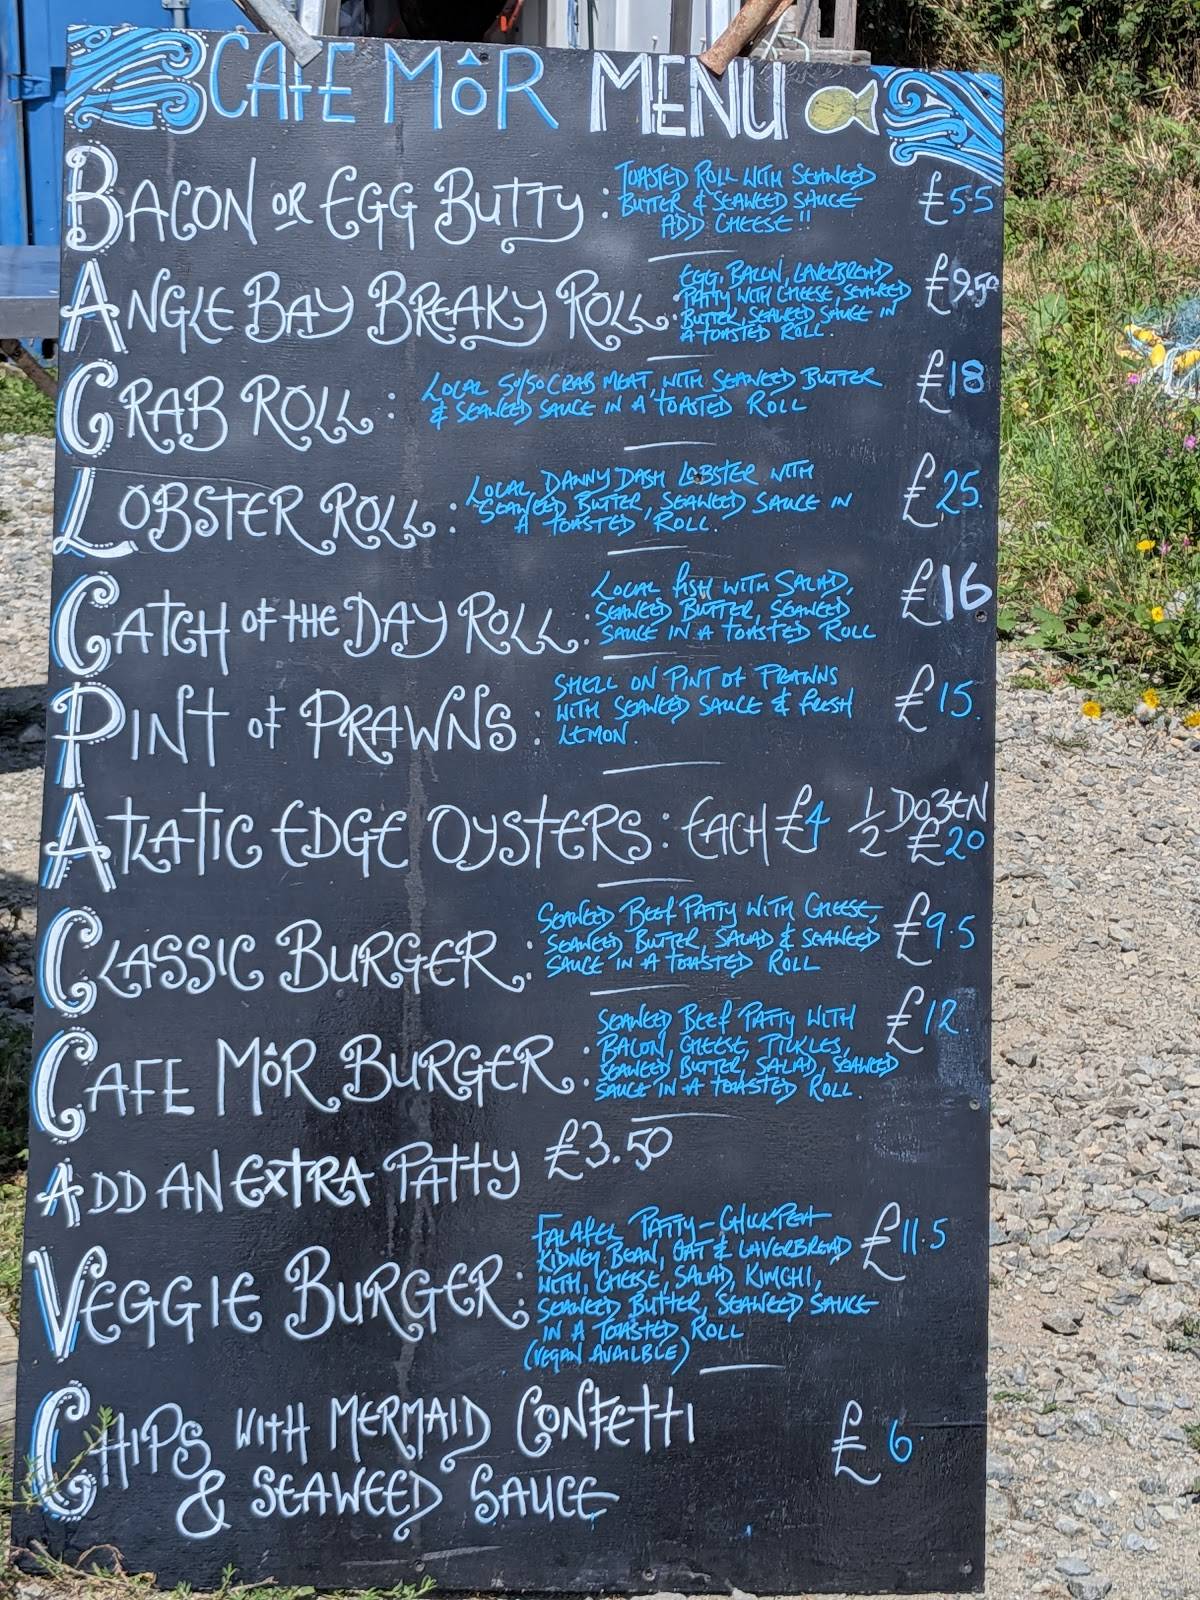 CAFE MÔR MENU
BACON OR EGG BUTTY : TOASTED ROLL WITH SEAWEED £5.5
BUTTER & SEAWEED SAUCE
ADD CHEESE!!
ANGLE BAY BREAKY ROLL : EGG, BACON, LAVERBREAD, £9.50
PATTY WITH CHEESE, SEAWEED
BUTTER, SEAWEED SAUCE IN
A TOASTED ROLL.
CRAB ROLL : LOCAL 50/50 CRAB MEAT, WITH SEAWEED BUTTER £18
& SEAWEED SAUCE IN A TOASTED ROLL
LOBSTER ROLL : LOCAL DANNY DASH LOBSTER WITH £25.
SEAWEED BUTTER, SEAWEED SAUCE IN
A TOASTED ROLL.
CATCH OF THE DAY ROLL : LOCAL FISH WITH SALAD, £16
SEAWEED BUTTER, SEAWEED
SAUCE IN A TOASTED ROLL
PINT OF PRAWNS : SHELL ON PINT OF PRAWNS £15.
WITH SEAWEED SAUCE & FRESH
LEMON.
ATLATIC EDGE OYSTERS : EACH £4 1/2 DOZEN
£20
CLASSIC BURGER : SEAWEED BEEF PATTY WITH CHEESE, £9.5
SEAWEED BUTTER, SALAD & SEAWEED
SAUCE IN A TOASTED ROLL
CAFE MÔR BURGER : SEAWEED BEEF PATTY WITH £12.
BACON, CHEESE, TICKLES,
SEAWEED BUTTER, SALAD, SEAWEED
SAUCE IN A TOASTED ROLL.
ADD AN EXTRA PATTY £3.50
VEGGIE BURGER : FALAFEL PATTY - CHICKPEA £11.5
KIDNEY BEAN, OAT & LAVERBREAD
WITH, CHEESE, SALAD, KIMCHI,
SEAWEED BUTTER, SEAWEED SAUCE
IN A TOASTED ROLL
(VEGAN AVAILBLE)
CHIPS WITH MERMAID CONFETTI £6.
& SEAWEED SAUCE